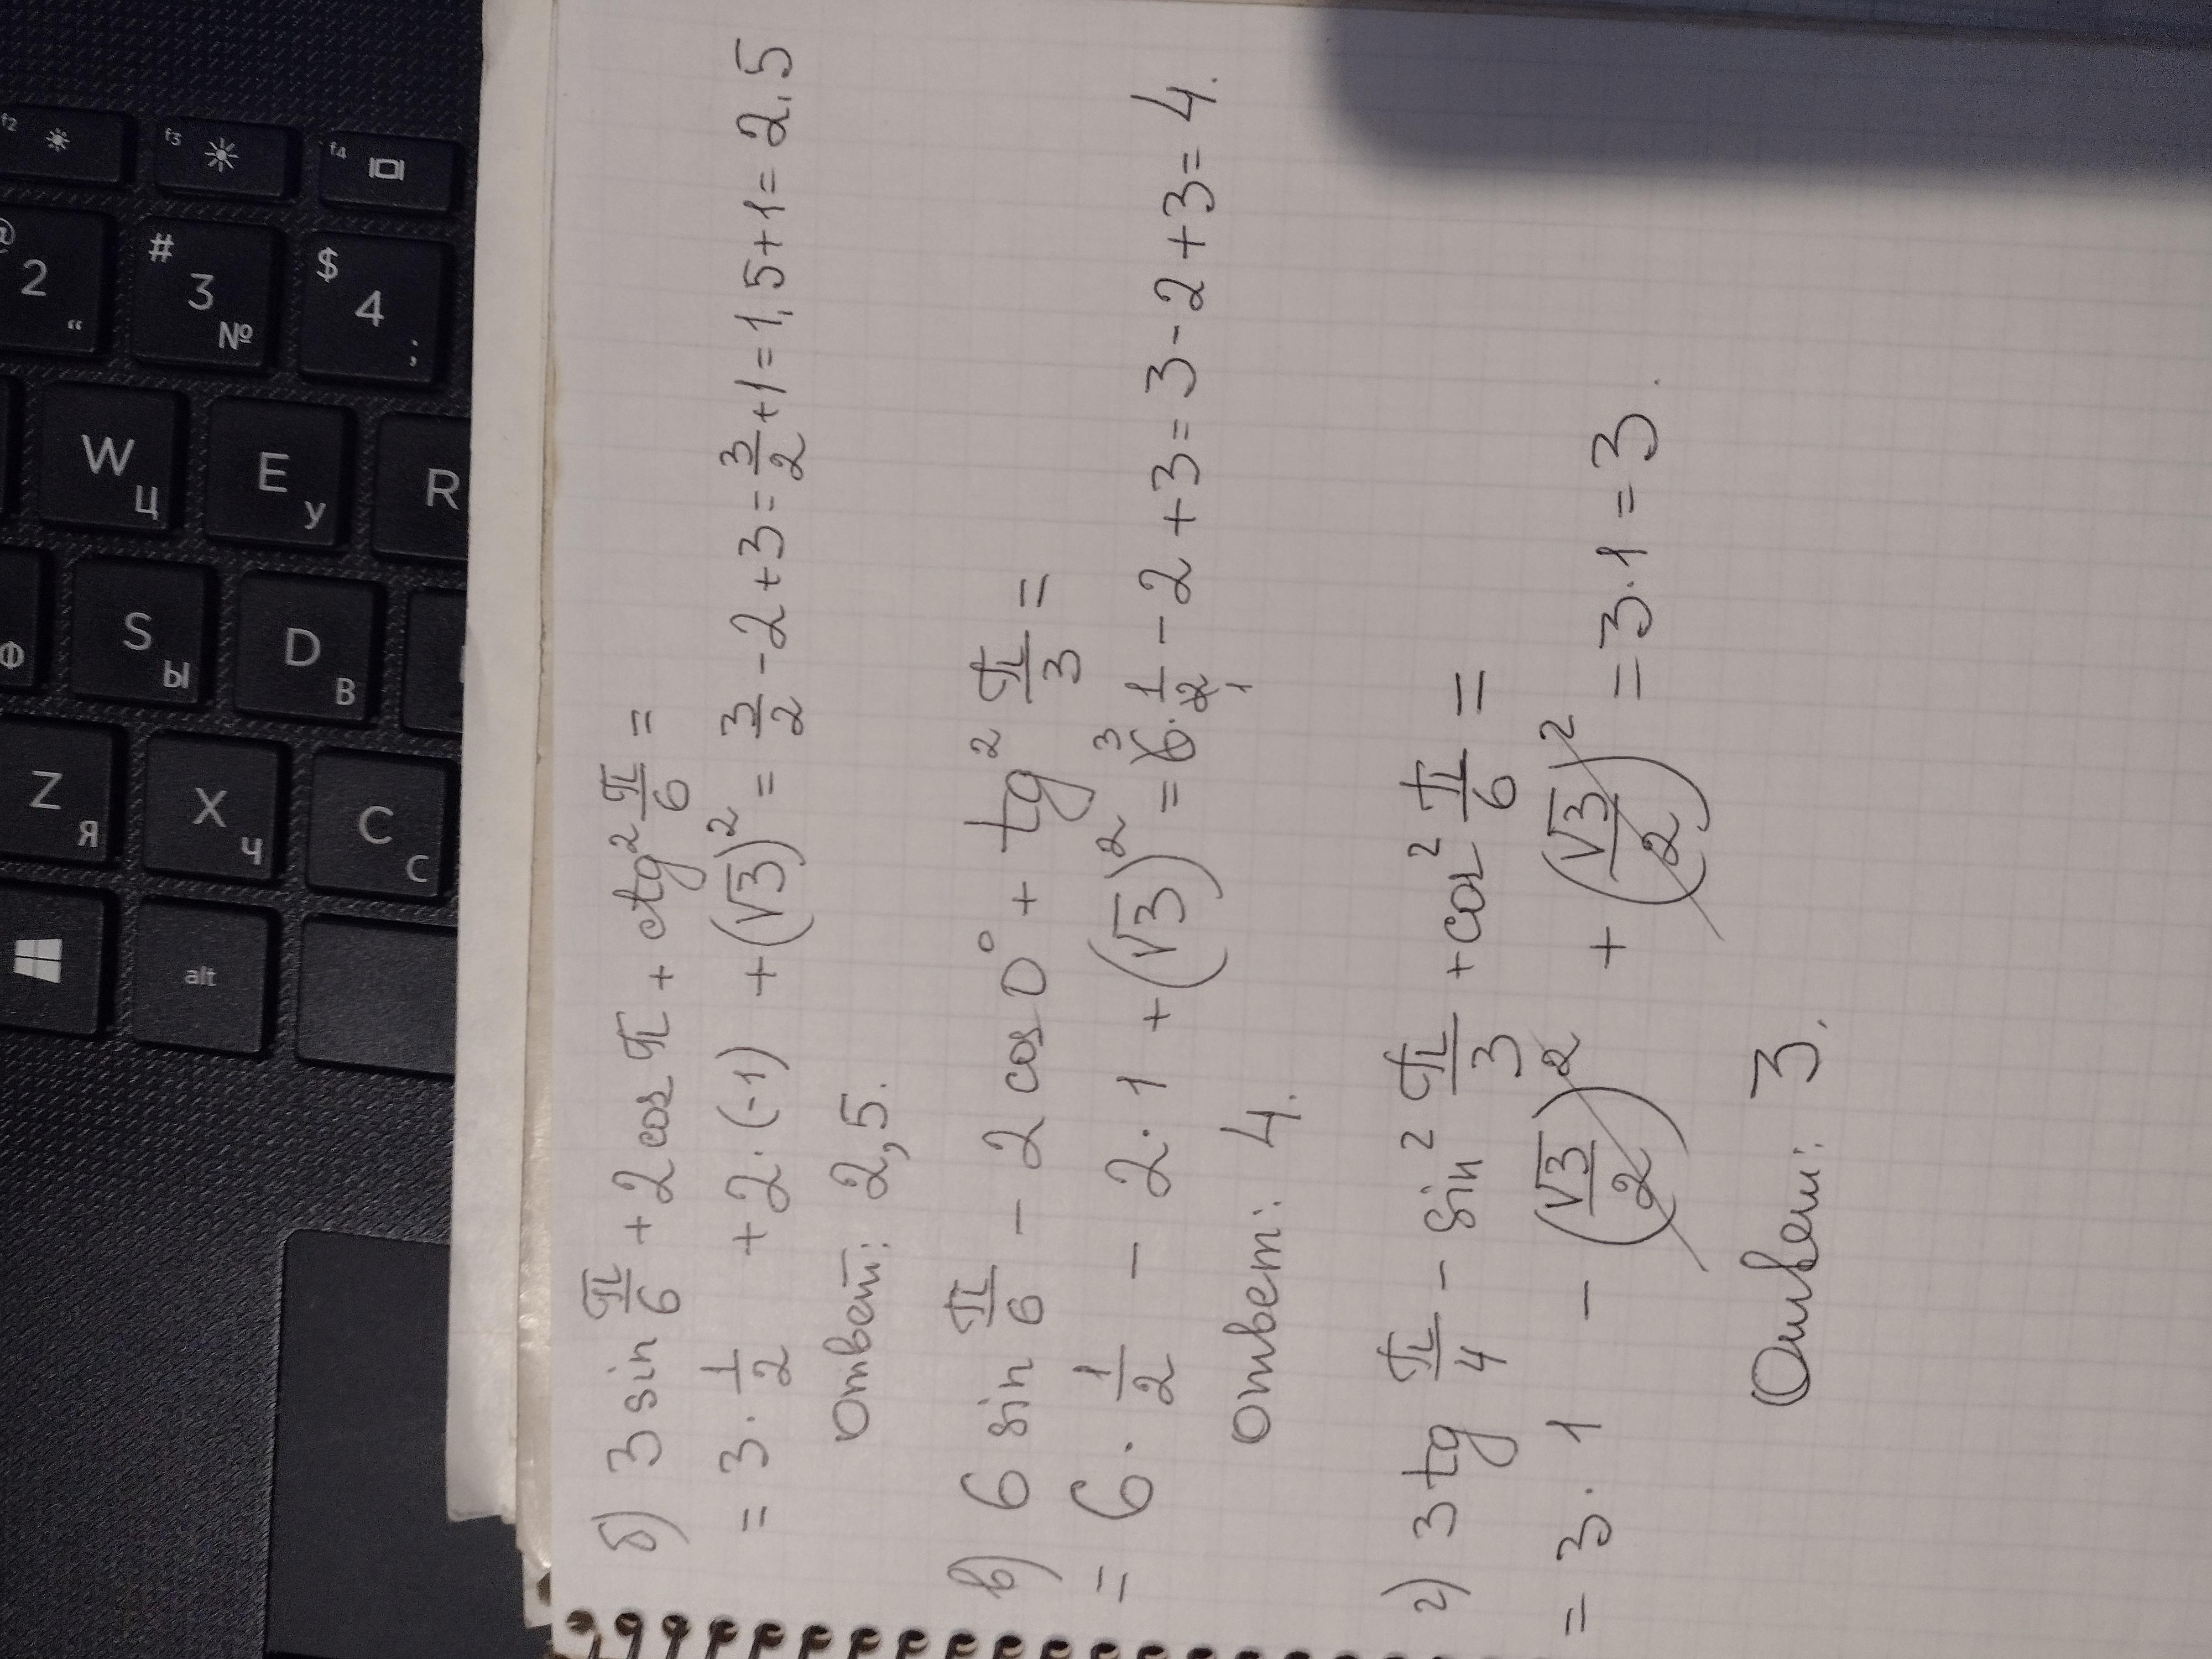 б) 3 sin π/6 + 2 cos π + ctg² π/6 =
= 3 · 1/2 + 2 · (-1) + (√3)² = 3/2 - 2 + 3 = 3/2 + 1 = 1,5 + 1 = 2,5
Ответ: 2,5.
в) 6 sin π/6 - 2 cos 0° + tg² π/3 =
= 6 · 1/2 - 2 · 1 + (√3)² = 6 3 · 1/2 1 - 2 + 3 = 3 - 2 + 3 = 4.
Ответ: 4.
г) 3 tg π/4 - sin² π/3 + cos² π/6 =
= 3 · 1 - (√3/2)² + (√3/2)² = 3 · 1 = 3.
Ответ: 3.
f2
f3
f4
@ 2 “
# 3 №
$ 4 ;
W Ц
E У
R
Ф
S Ы
D В
Z Я
X Ч
C С
alt